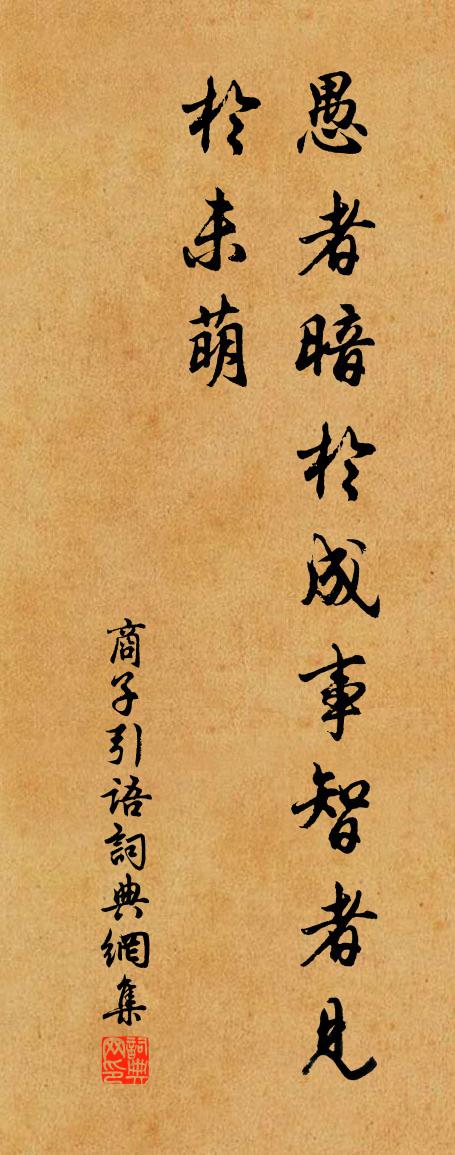 愚者暗於成事智者見
於未萌
商子引语詞典網集
詞典
网印